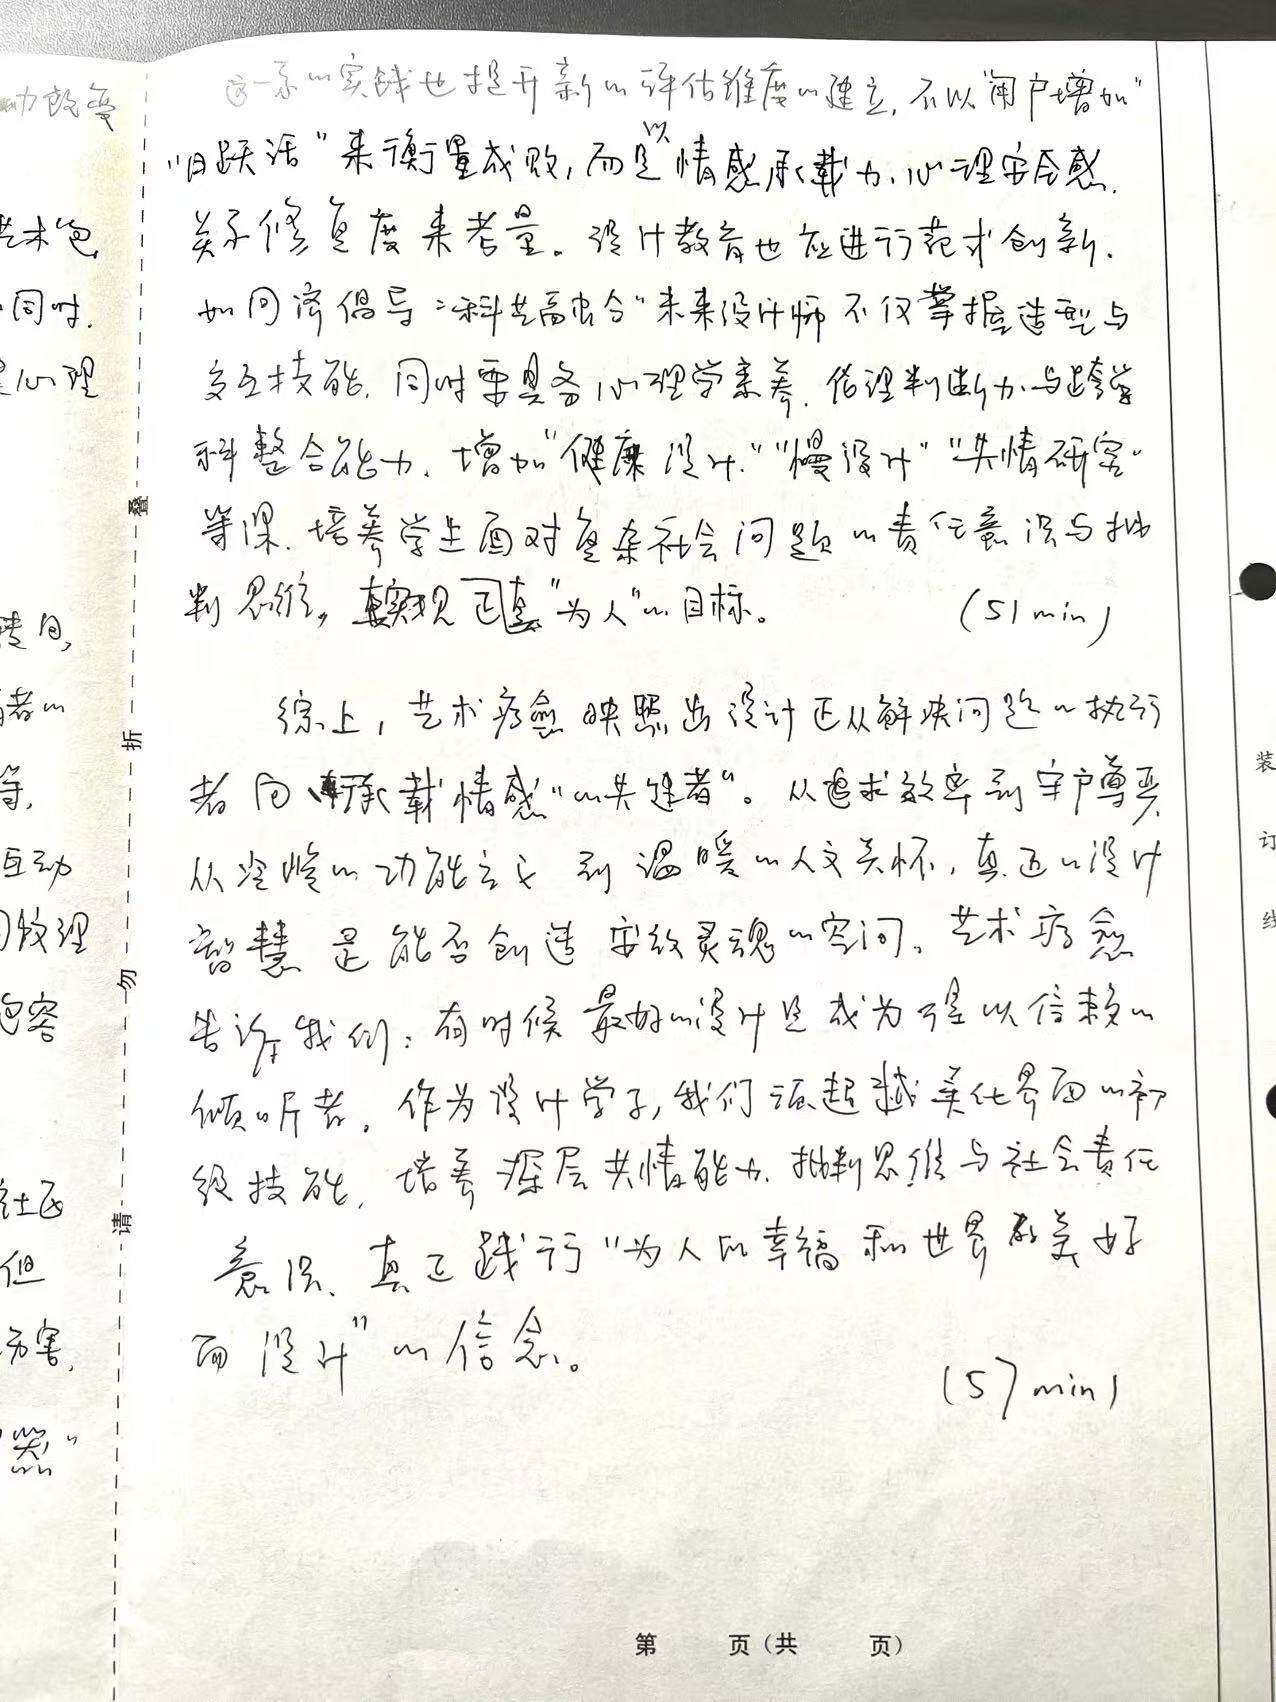 这一系的实践也提升新的评估维度的建立，不以"用户增加"
"日跃活"来衡量成败，而是以情感承载力、心理安全感、
关系修复度来考量。设计教育也应进行范式创新。
如同济倡导"科艺融合"未来设计师不仅掌握造型与
交互技能，同时要具备心理学素养、伦理判断力与跨学
科整合能力，增加"健康设计""慢设计""共情研究"
等课，培养学生面对复杂社会问题的责任意识与批
判思维，实现正真"为人"的目标。 (51min)
综上，艺术疗愈映照出设计正从解决问题的执行
者向承载情感"的共建者"。从追求效率到守护尊严
从冷峻的功能主义到温暖的人文关怀，真正的设计
智慧是能否创造安放灵魂的空间。艺术疗愈
告诉我们：有时候最好的设计是成为可以信赖的
倾听者。作为设计学子，我们须超越美化界面的初
级技能，培养深层共情能力、批判思维与社会责任
意识，真正践行"为人的幸福和世界的美好
而设计"的信念。
(57min)
动效变
艺术包
同时，
心理
者的
等，
互动
纹理
包容
社区
但
伤害，
装
订
线
请 勿 折 叠
第 页（共 页）